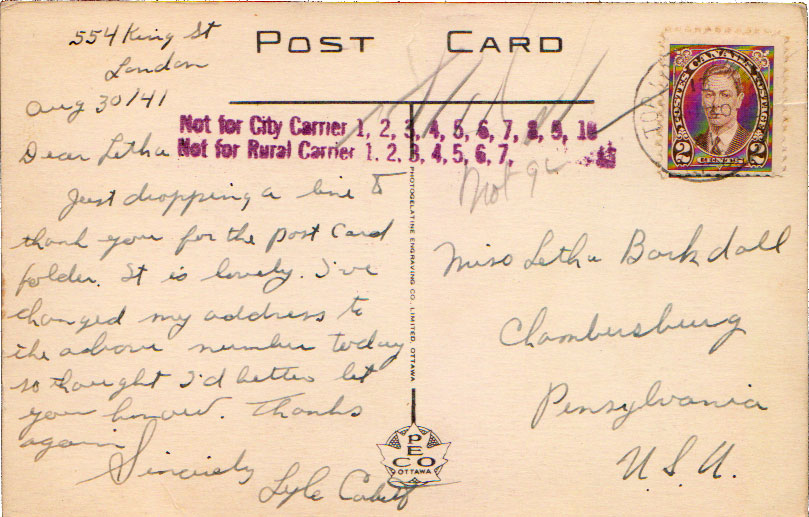 POST CARD
554 King St
London
Aug 30/41
Not for City Carrier 1, 2, 3, 4, 5, 6, 7, 8, 9, 10
Not for Rural Carrier 1, 2, 3, 4, 5, 6, 7,
Dear Letha
Just dropping a line to
thank you for the post card
folder. It is lovely. I've
changed my address to
the above number today
so thought I'd better let
you know. Thanks
again
Sincerely
Lyle
POSTES CANADA POSTAGE
2 CENTS 2
Not
Miss Letha Barkdoll
Chambersburg
Pensylvania
U.S.A.
PHOTOGELATINE ENGRAVING CO. LIMITED, OTTAWA
PECO
OTTAWA